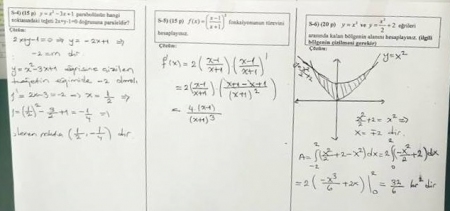 S-4) (15 p) y = x² - 3x + 1 parabolünün hangi
noktasındaki teğeti 2x+y-1=0 doğrusuna paraleldir?
Çözüm:
2x+y-1=0 ⇒ y = -2x+1 ⇒
-2=m dir
y = x² - 3x + 1 eğrisine çizilen
teğetin eğimide -2 olmalı
y' = 2x-3 = -2 ⇒ x = 1/2 ⇒
y = (1/2)² - 3/2 + 1 = -1/4 ⇒
nokta (1/2, -1/4) dir
S-5) (15 p) f(x) = ((x-1)/(x+1))² fonksiyonunun türevini
hesaplayınız.
Çözüm:
f'(x) = 2 ((x-1)/(x+1)) · ((x-1)/(x+1))'
= 2 ((x-1)/(x+1)) · ((x+1-x+1)/(x+1)²)
= 4(x-1)/(x+1)³
S-6) (20 p) y = x² ve y = x²/2 + 2 eğrileri
arasında kalan bölgenin alanını hesaplayınız. (ilgili
bölgenin çizilmesi gerekir)
Çözüm:
y = x²
x²/2 + 2 = x² ⇒
x = ∓2 dir.
A = ∫₋₂² (x²/2 + 2 - x²) dx = 2∫₀² (-x²/2 + 2) dx
= 2 (-x³/6 + 2x) |₀² = 32/6 br² dir